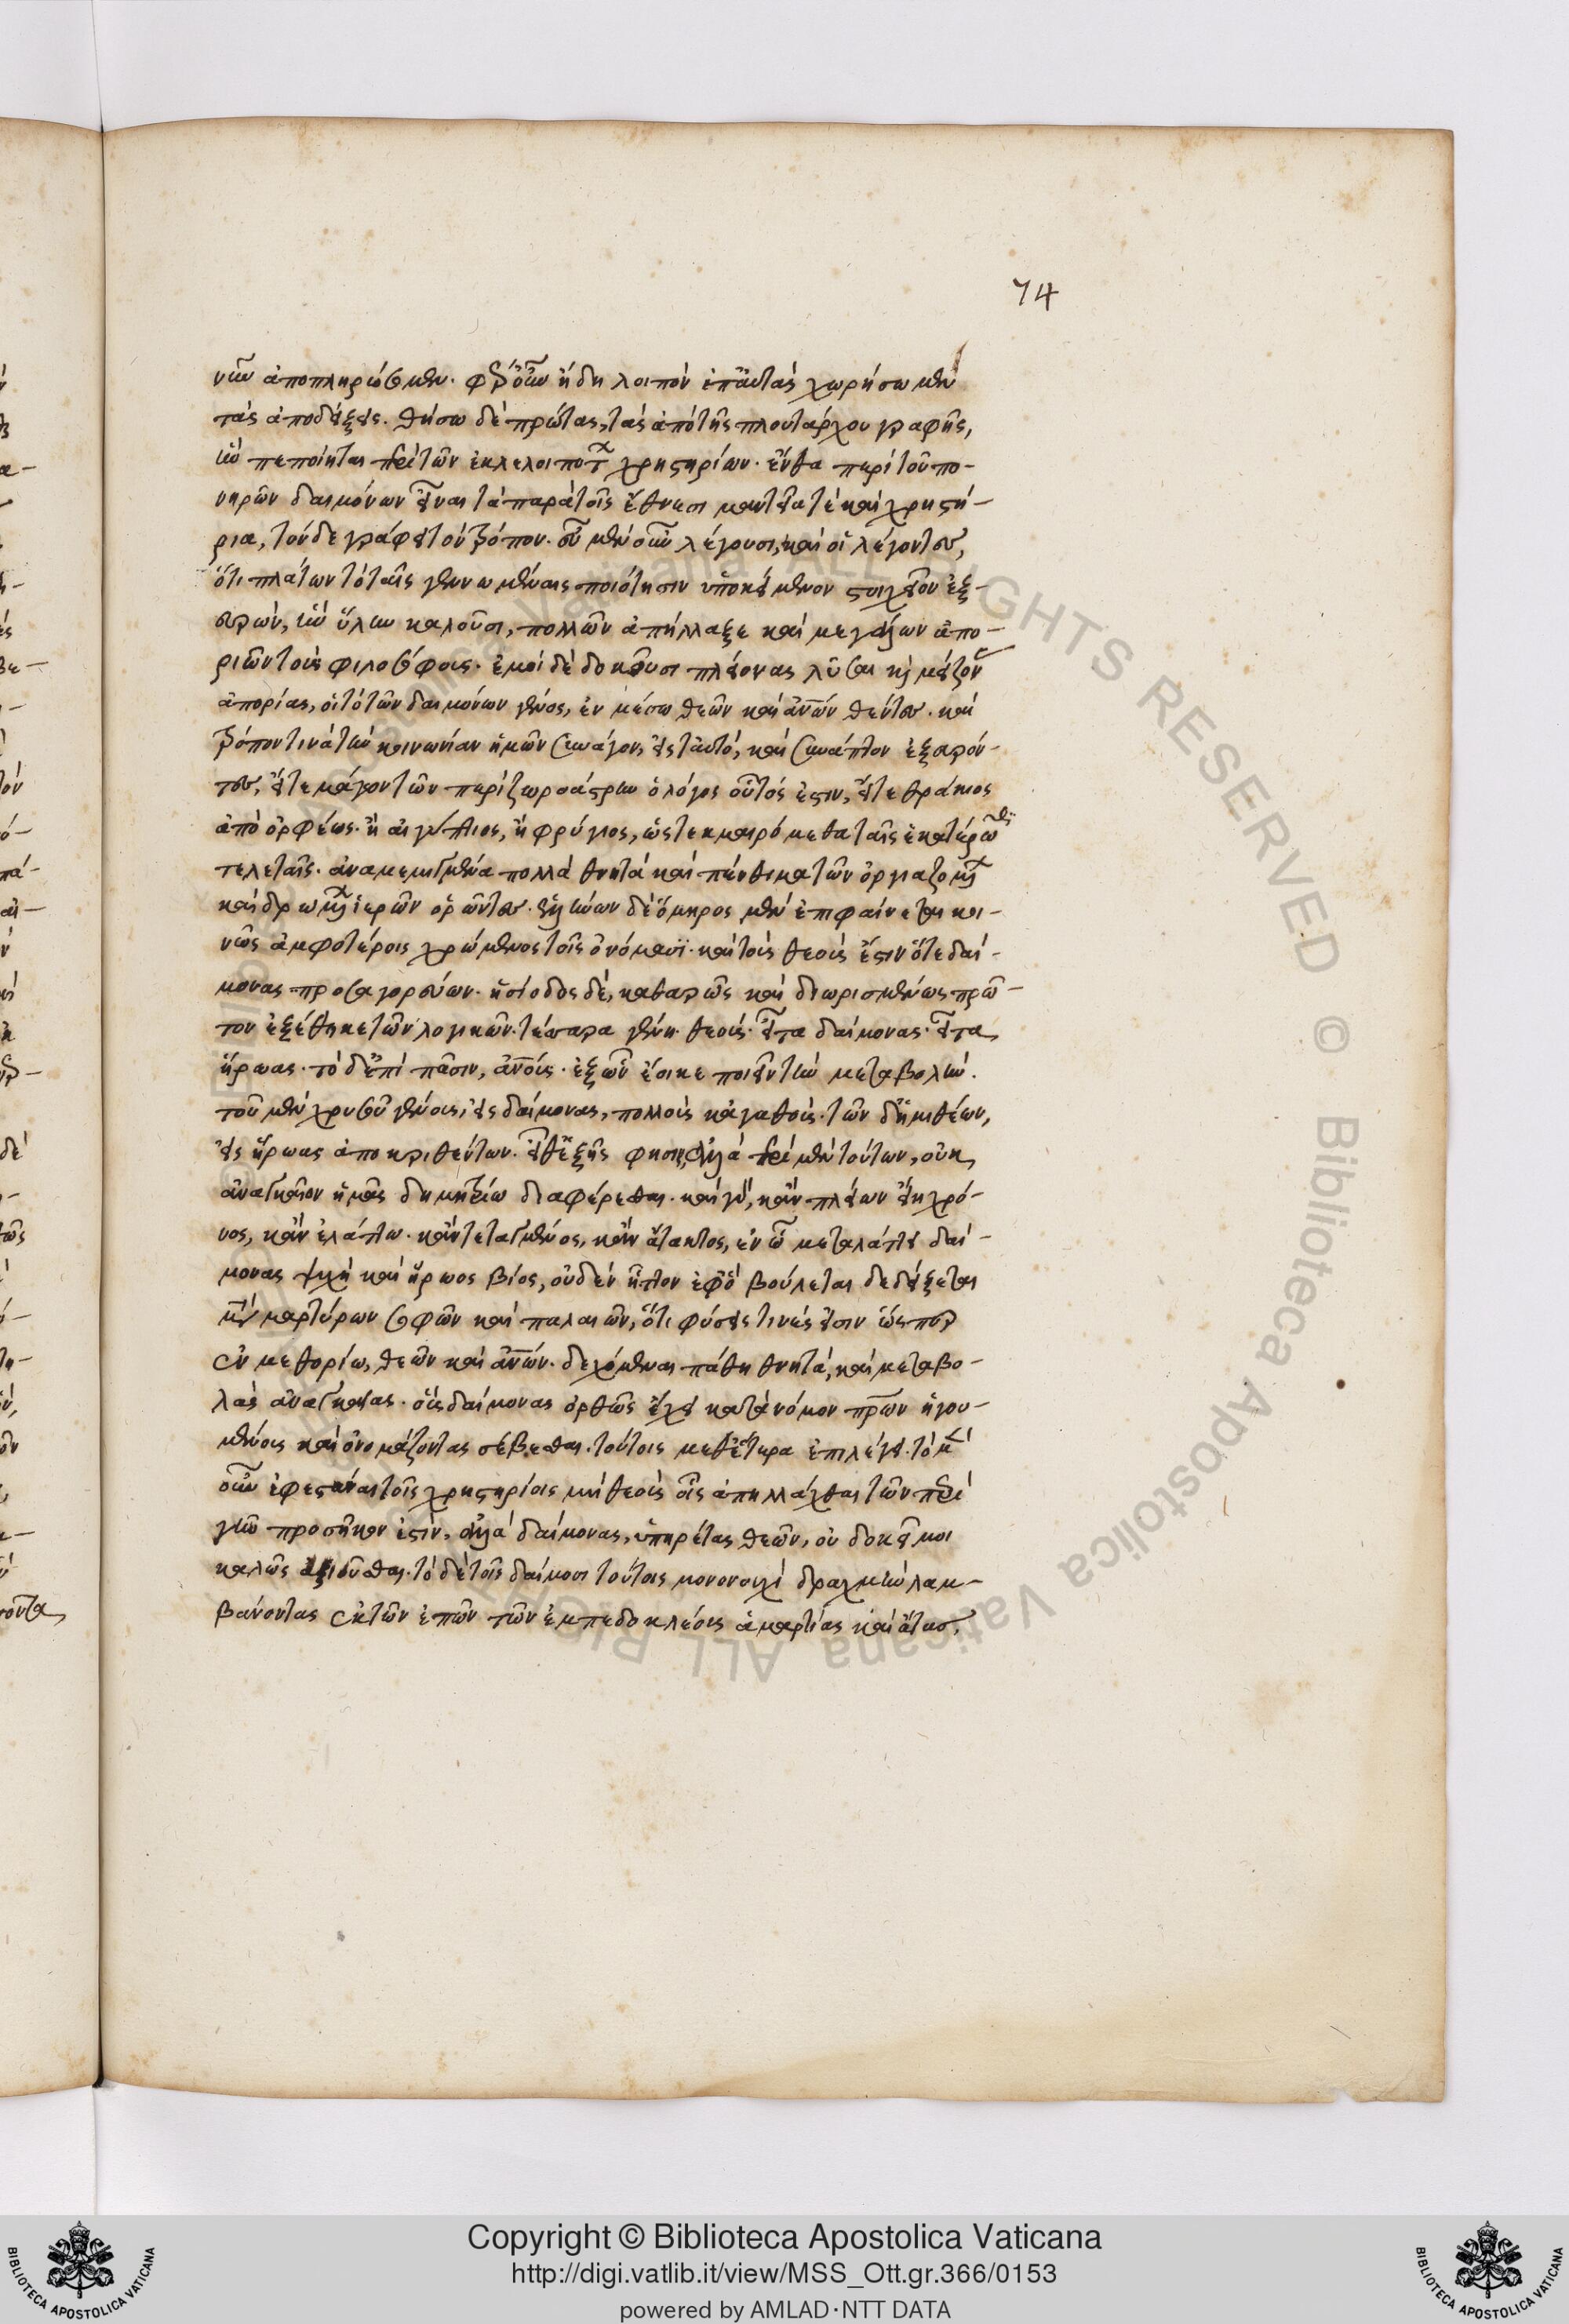 74
νῶν ἀποπληρώσωμεν. φέρε οὖν ἤδη λοιπὸν ἐπ' αὐτὰς χωρήσωμεν
τὰς ἀποδείξεις. θήσω δὲ πρώτας, τὰς ἀπὸ τῆς πλουτάρχου γραφῆς,
ἣν πεποίηται περὶ τῶν ἐκλελοιπότων χρηστηρίων. ἔνθα περὶ τοῦ πο-
νηρῶν δαιμόνων εἶναι τὰ παρὰ τοῖς ἔθνεσι μαντεῖα τὲ καὶ χρηστή-
ρια, τόνδε γράφει τὸν τρόπον. εὖ μὲν οὖν λέγουσι, καὶ οἱ λέγοντες,
ὅτι πλάτων τὸ ταῖς γεννωμέναις ποιότησιν ὑποκείμενον στοιχεῖον ἐξ-
ευρὼν, ἣν ὕλην καλοῦσι, πολλῶν ἀπήλλαξε καὶ μεγάλων ἀπο-
ριῶν τοὺς φιλοσόφους. ἐμοὶ δὲ δοκοῦσι πλείονας λῦσαι καὶ μείζονας
ἀπορίας, οἱ τὸ τῶν δαιμόνων γένος, ἐν μέσω θεῶν καὶ ἀνθρώπων θέντες. καὶ
τρόπον τινὰ τὴν κοινωνίαν ἡμῶν συνάγον εἰς ταὐτό, καὶ συνάπτον ἐξευρόν-
τες, εἴτε μάγων τῶν περὶ ζωροάστρην ὁ λόγος οὗτός ἐστιν, εἴτε θράκιος
ἀπὸ ὀρφέως. ἢ αἰγύπτιος, ἢ φρύγιος, ὡς τεκμαιρόμεθα ταῖς ἑκατέρωθι
τελεταῖς. ἀναμεμιγμένα πολλὰ θνητὰ καὶ πένθιμα τῶν ὀργιαζομένων
καὶ δρωμένων ἱερῶν ὁρῶντες. ἑλλήνων δὲ ὅμηρος μὲν ἐπιφαίνεται κοι-
νῶς ἀμφοτέροις χρώμενος τοῖς ὀνόμασϊ. καὶ τοὺς θεοὺς ἔστιν ὅτε δαί-
μονας προσαγορεύων. ἡσίοδος δέ, καθαρῶς καὶ διωρισμένως πρῶ-
τον ἐξέθηκε τῶν λογικῶν. τέσσαρα γένη. θεούς. εἶτα δαίμονας. εἶτα
ἥρωας. τὸ δ' ἐπὶ πᾶσιν, ἀνθρώπους. ἐξ ὧν ἔοικε ποιεῖν τὴν μεταβολήν.
τοῦ μὲν χρυσοῦ γένους, εἰς δαίμονας, πολλοὺς κἀγαθούς. τῶν δ' ἡμιθέων,
εἰς ἥρωας ἀποκριθέντων. εἶθ' ἑξῆς φησιν, ἀλλὰ περὶ μὲν τούτων, οὐκ
ἀναγκαῖον ἡμᾶς δημητρίω διαφέρεσθαι. καὶ γὰρ, κἂν πλείων εἴη χρό-
νος, κἂν ἐλάττω. κἂν τεταγμένος, κἂν ἄτακτος, ἐν ᾧ μεταλάττει δαί-
μονας ψυχὴ καὶ ἥρωος βίος, οὐδὲν ἧττον ἐφ' ὃ βούλεται δεδείξεται
μετὰ μαρτύρων σοφῶν καὶ παλαιῶν, ὅτι φύσεις τινές εἰσιν ὥσπερ
ἐν μεθορίω, θεῶν καὶ ἀνθρώπων. δεχόμεναι πάθη θνητὰ, καὶ μεταβο-
λὰς ἀναγκαίας. οὓς δαίμονας ὀρθῶς ἔχει κατὰ νόμον πατέρων ἡγου-
μένους καὶ ὀνομάζοντας σέβεσθαι. τούτοις μεθ' ἕτερα ἐπιλέγει. τὸ μὲν
οὖν ἐφεστάναι τοῖς χρηστηρίοις μὴ θεοὺς οἷς ἀπηλλάχθαι τῶν περὶ
γῆν προσῆκον ἐστίν, ἀλλὰ δαίμονας, ὑπηρέτας θεῶν, οὐ δοκεῖ μοι
καλῶς ἀξιοῦσθαι. τὸ δὲ τοῖς δαίμοσι τούτοις μονονουχὶ δραχμὴν λαμ-
βάνοντας ἐκ τῶν ἐπῶν τῶν ἐμπεδοκλέους ἁμαρτίας καὶ ἄτας,
Copyright © Biblioteca Apostolica Vaticana
http://digi.vatlib.it/view/MSS_Ott.gr.366/0153
powered by AMLAD·NTT DATA